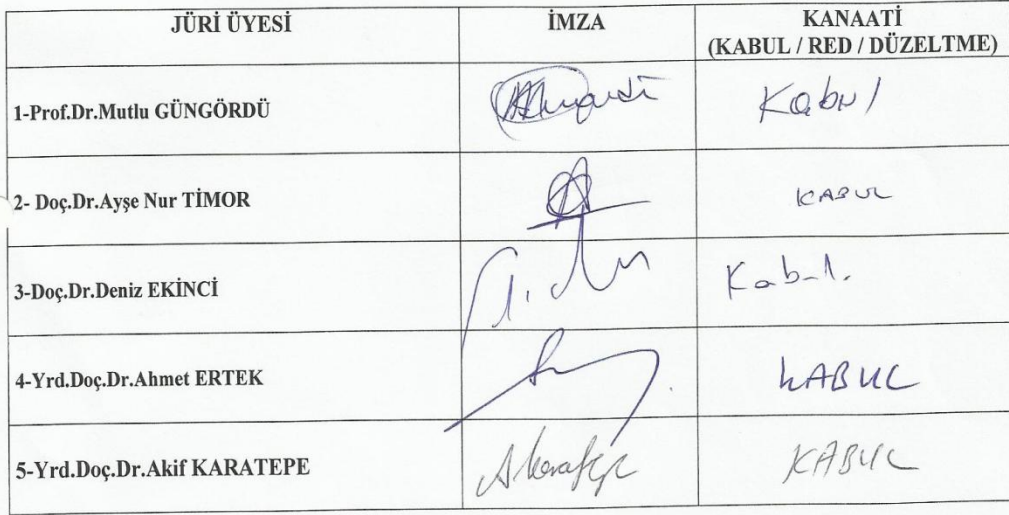 JÜRİ ÜYESİ İMZA KANAATİ
(KABUL / RED / DÜZELTME)
1-Prof.Dr.Mutlu GÜNGÖRDÜ Kabul
2- Doç.Dr.Ayşe Nur TİMOR KABUL
3-Doç.Dr.Deniz EKİNCİ Kabul.
4-Yrd.Doç.Dr.Ahmet ERTEK KABUL
5-Yrd.Doç.Dr.Akif KARATEPE AKaratepe KABUL